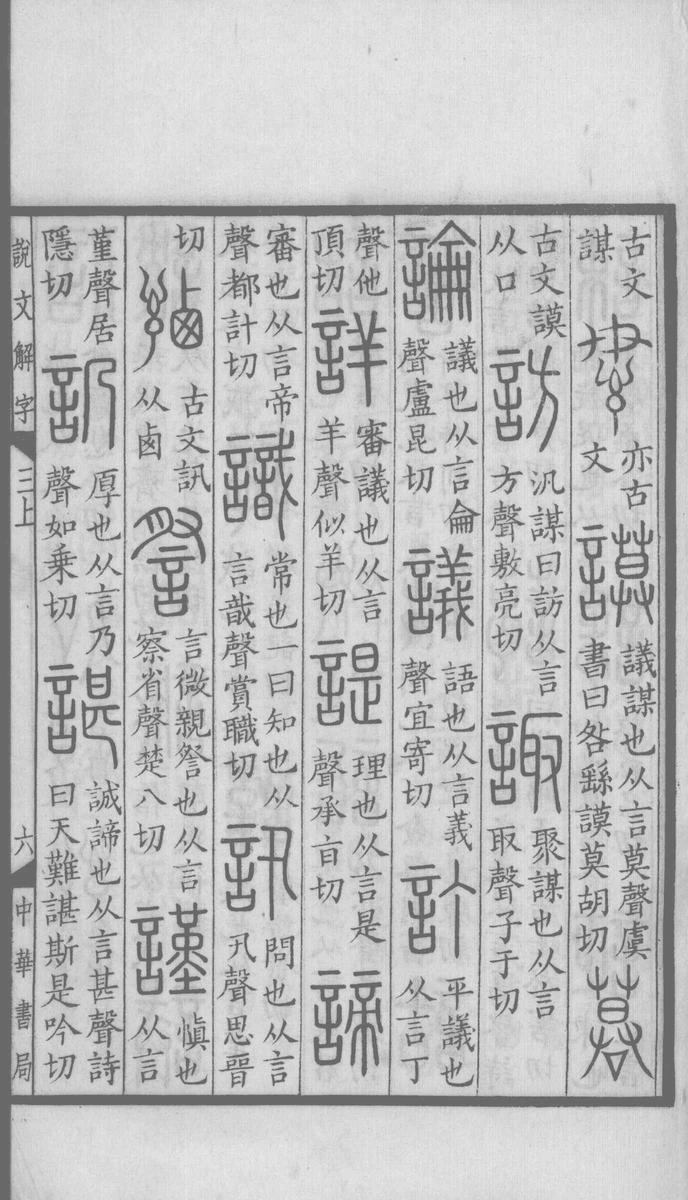 古文謀𧦥亦古文謨議謀也从言莫聲虞書曰咎繇謨莫胡切𠻚
古文謨从口訪汎謀曰訪从言方聲敷亮切諏聚謀也从言取聲子于切
論議也从言侖聲盧昆切議語也从言義聲宜寄切訂平議也从言丁
聲他頂切詳審議也从言羊聲似羊切諟理也从言是聲承旨切諦
審也从言帝聲都計切識常也一曰知也从言戠聲賞職切訊問也从言卂聲思晉
切古文訊从卥詧言微親詧也从言察省聲楚八切謹愼也从言
堇聲居隱切䚮厚也从言乃聲如乗切諶誠諦也从言甚聲詩曰天難諶斯是吟切
說文解字 三上 六 中華書局